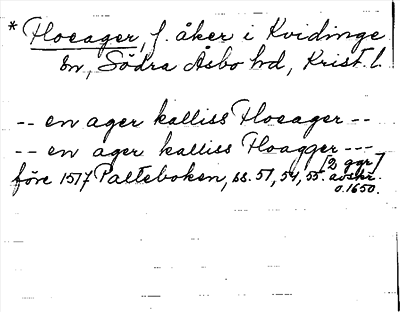 * Hoeager, f. åker i Kvidinge
sn, Södra Åsbo hd, Krist. l.
-- en ager kalliss Hoeager --
-- en ager kalliss Hoagger ---
[2 ggr]
före 1517 Palteboken, ss. 51, 54, 55. avskr.
o. 1650.